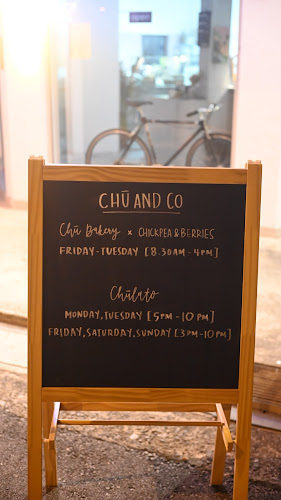 OPEN
CHŪ AND CO
Chū Bakery x CHICKPEA & BERRIES
FRIDAY-TUESDAY [8.30AM-4PM]
Chūlato
MONDAY, TUESDAY [5PM-10PM]
FRIDAY, SATURDAY, SUNDAY [3PM-10PM]